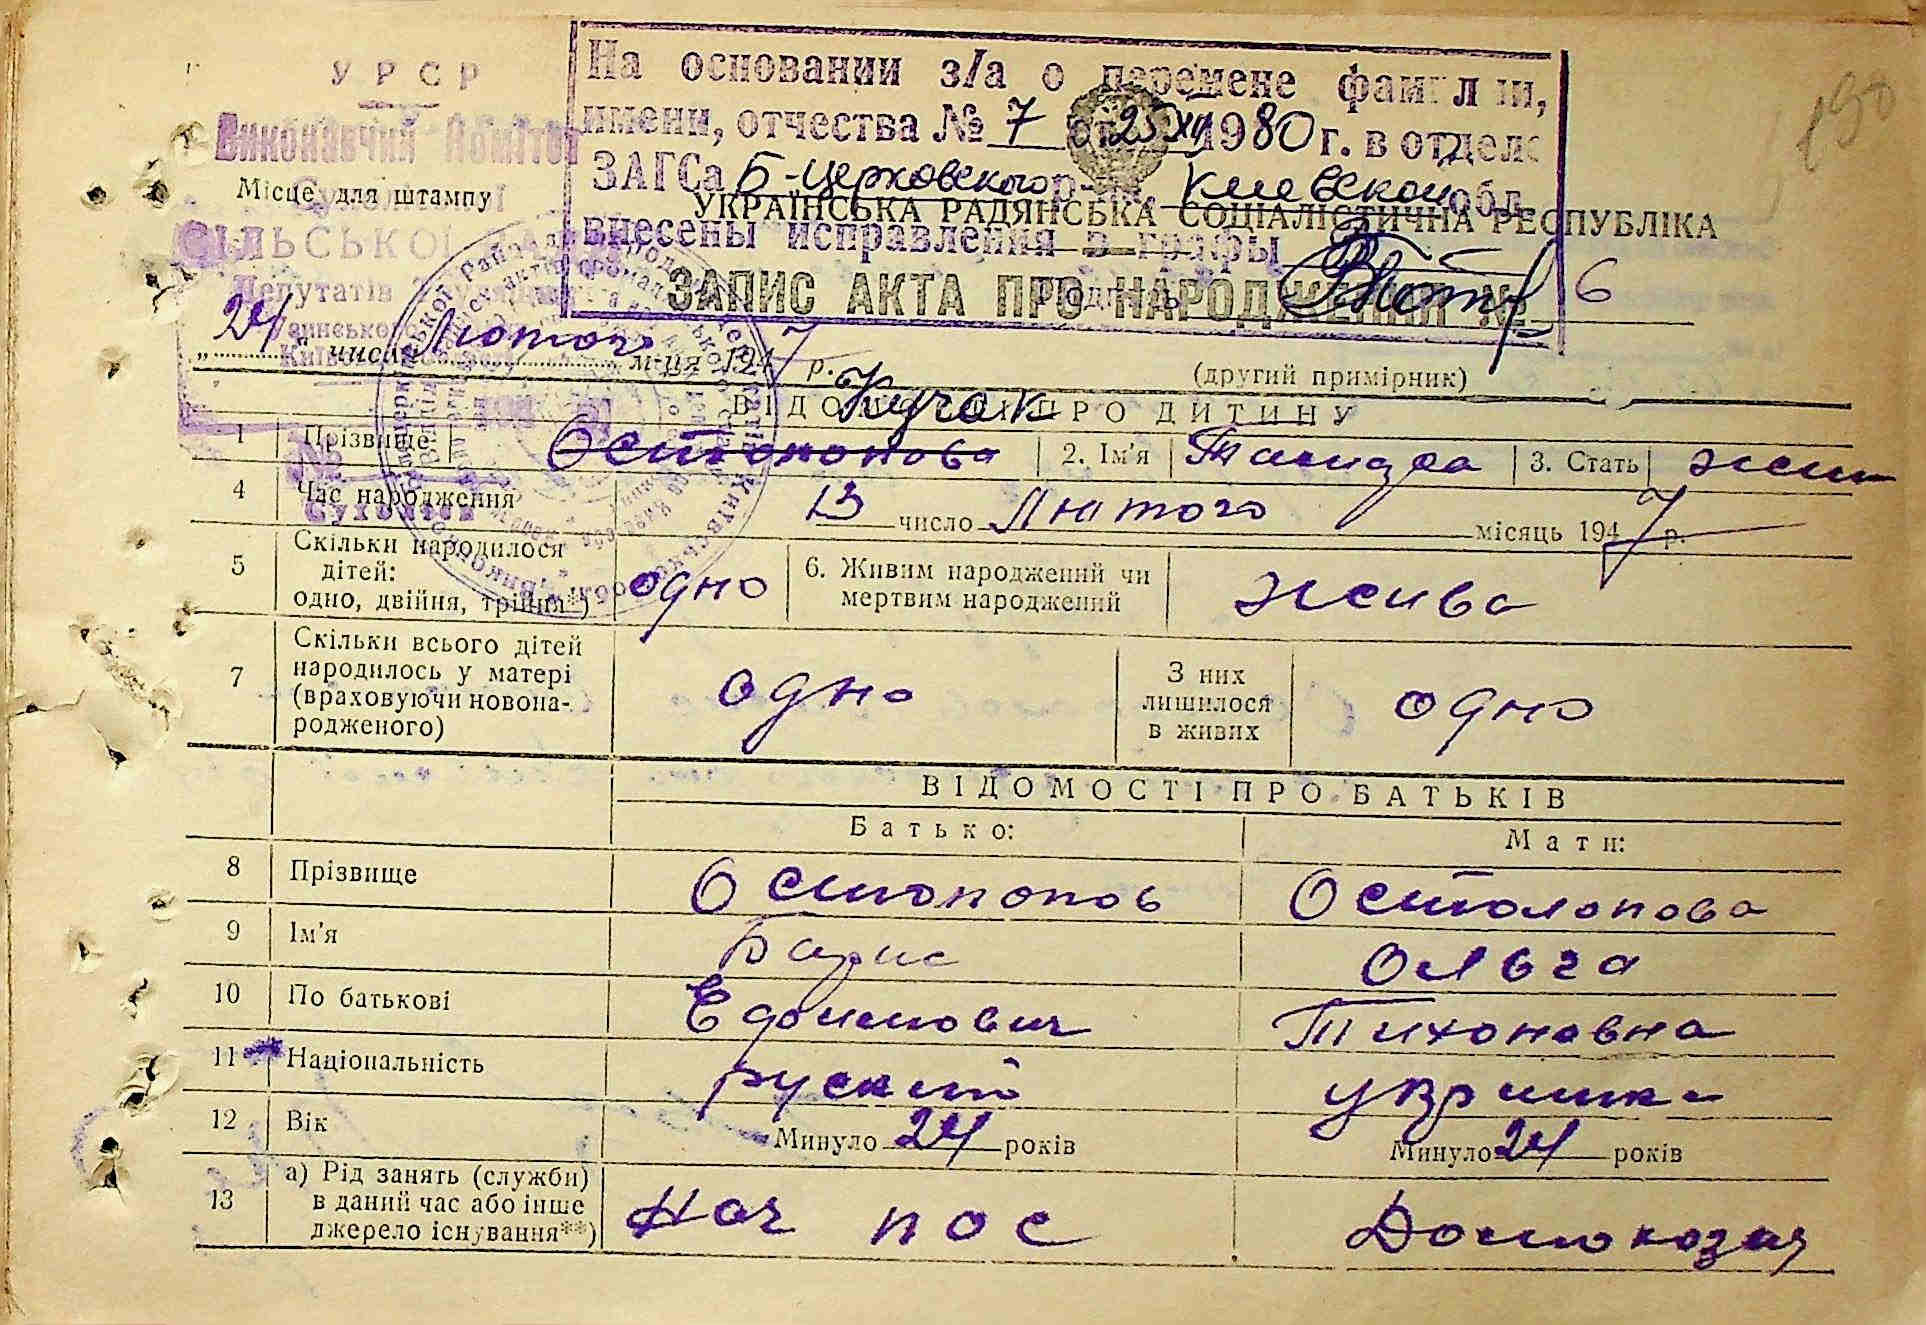 190
УРСР
Виконавчий Комітет
Місце для штампу
СІЛЬСЬКОЇ
Депутатів
На основании з/а о перемене фамилии,
имени, отчества № 7 от 25 XII 1980 г. в отделе
ЗАГСа Б-Церковского р- Киевской обл.
внесены исправления в графы
УКРАЇНСЬКА РАДЯНСЬКА СОЦІАЛІСТИЧНА РЕСПУБЛІКА
ЗАПИС АКТА ПРО НАРОДЖЕННЯ № 6
„24“ числа Лютого м-ця 1947 р.
(другий примірник)
ВІДОМОСТІ ПРО ДИТИНУ
Кучак
1 Прізвище Остополова 2. Ім'я 3. Стать жін
4 Час народження 13 число Лютого місяць 1947 р.
Сухоліс
5 Скільки народилося дітей: одно, двійня, трійня*) одно 6. Живим народжений чи мертвим народжений жива
7 Скільки всього дітей народилось у матері (враховуючи новонародженого) одно З них лишилося в живих одно
ВІДОМОСТІ ПРО БАТЬКІВ
Батько: Мати:
8 Прізвище Остополов Остолопова
9 Ім'я Борис Ольга
10 По батькові Тихоновна
11 Національність руский українка
12 Вік Минуло 24 років Минуло 24 років
13 а) Рід занять (служби) в даний час або інше джерело існування**) Нач пос Домохозяй